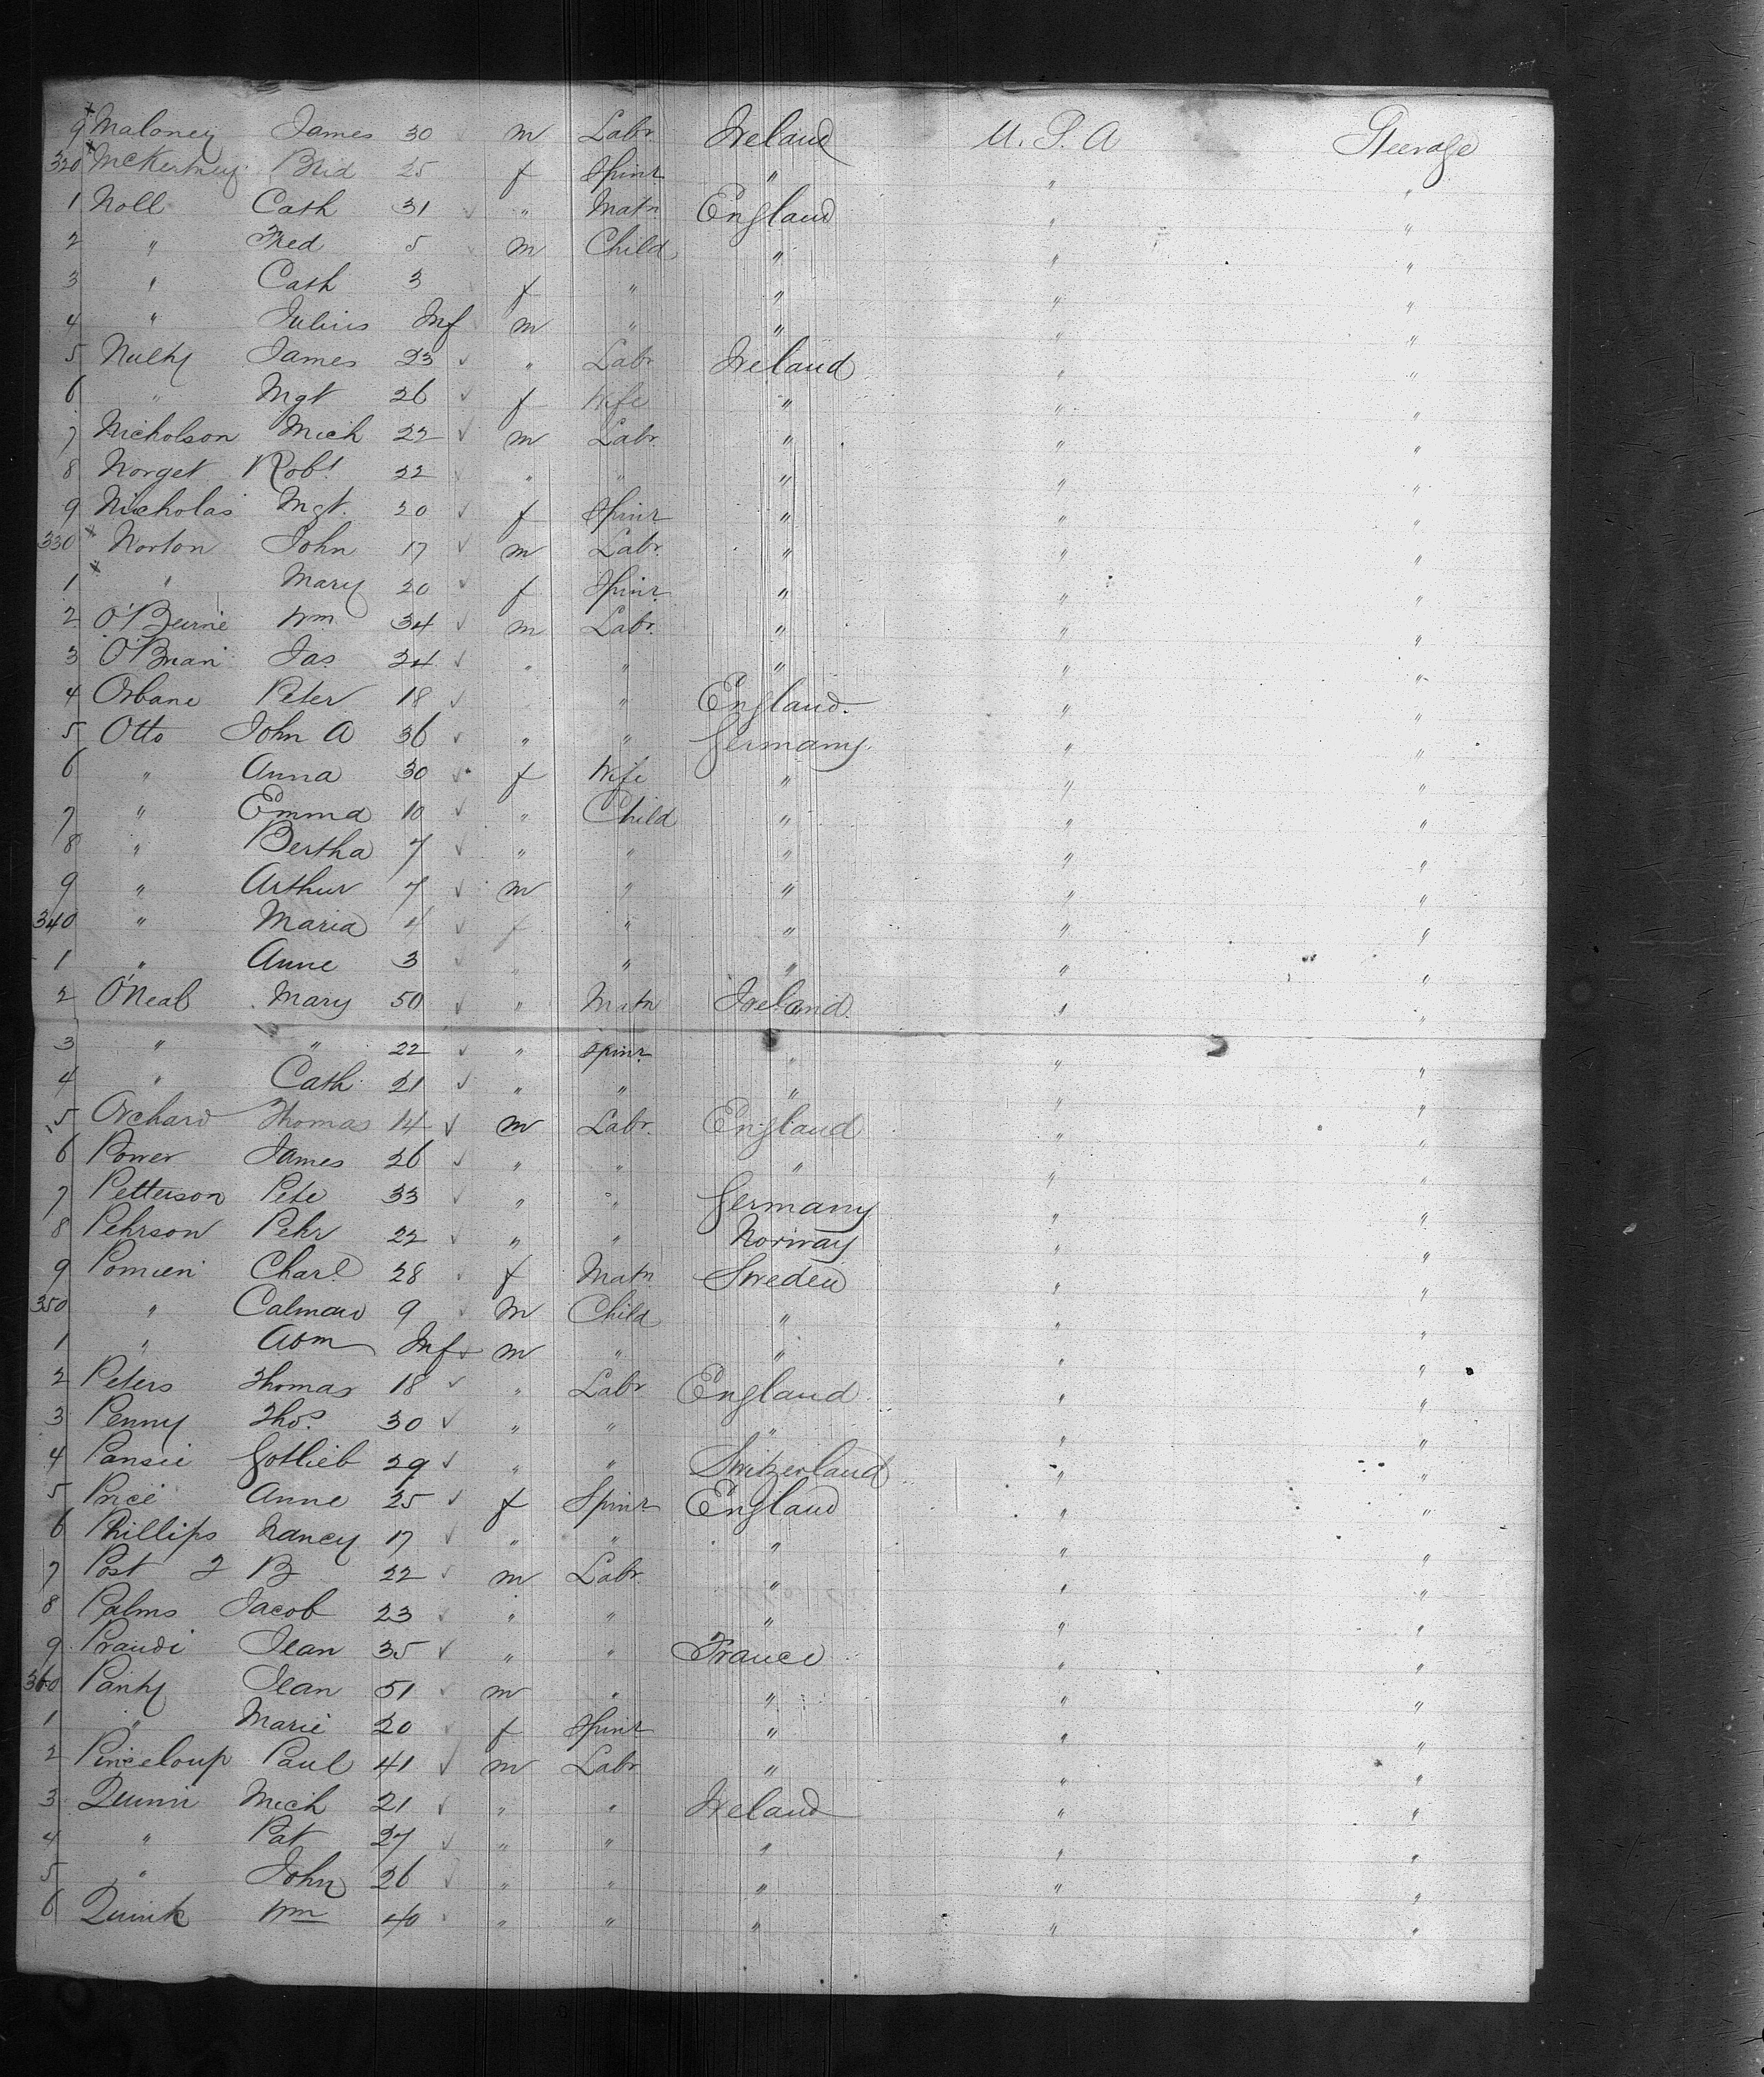 9 x Maloney James 30 ✓ m Labr. Ireland U. S. A Steerage
320 x McKertney Brid 25 f Spinr " " "
1 Noll Cath 31 ✓ " Matn England " "
2 " Fred 5 m Child " " "
3 " Cath 3 f " " " "
4 " Julius Inf m " " " "
5 Nulty James 23 ✓ " Labr Ireland " "
6 " Mgt 26 ✓ f Wife " " "
7 Nicholson Mich 22 ✓ m Labr. " " "
8 Norget Robt 22 ✓ " " " " "
9 Nicholas Mgt. 20 ✓ f Spinr " " "
330 x Norton John 17 ✓ m Labr. " " "
1 x " Mary 20 ✓ f Spinr " " "
2 O'Beirne Wm 34 ✓ m Labr. " " "
3 O'Brian Jas 24 ✓ " " " " "
4 Orbane Peter 18 ✓ " England. " "
5 Otto John A 36 ✓ " " Germany. " "
6 " Anna 30 ✓ f Wife " " "
7 " Emma 10 ✓ " Child " " "
8 " Bertha 7 ✓ " " " " "
9 " Arthur 7 ✓ m " " " "
340 " Maria 4 ✓ f " " " "
1 " Anne 3 ✓ " " " " "
2 O'Neal Mary 50 ✓ " Matn Ireland. " "
3 " " 22 ✓ " Spinr " " "
4 " Cath 21 ✓ " " " " "
5 Orchard Thomas 14 ✓ m Labr. England " "
6 Power James 26 ✓ " " " " "
7 Petterson Pete 33 ✓ " " Germany " "
8 Pehrson Pehr 22 ✓ " " Norway " "
9 Charl 28 ✓ f Matn Sweden " "
350 " 9 ✓ m Child " " "
1 " Abm Inf ✓ m " " " "
2 Peters Thomas 18 ✓ " Labr England " "
3 Penny Thos. 30 ✓ " " " " "
4 Pansie Gotlieb 29 ✓ " " Switzerland " "
5 Price Anne 25 ✓ f Spinr England " "
6 Phillips Nancy 17 ✓ " " " " "
7 Post J B 22 ✓ m Labr. " " "
8 Palms Jacob 23 ✓ " " " " "
9 Praudi Jean 35 ✓ " " France " "
360 Jean 51 ✓ m " " " "
1 " Marie 20 ✓ f Spinr " " "
2 Pinceloup Paul 41 ✓ m Labr " " "
3 Quinn Mich 21 ✓ " " Ireland " "
4 " Pat 27 ✓ " " " " "
5 " John 26 ✓ " " " " "
6 Quirk Wm 40 " " " " "